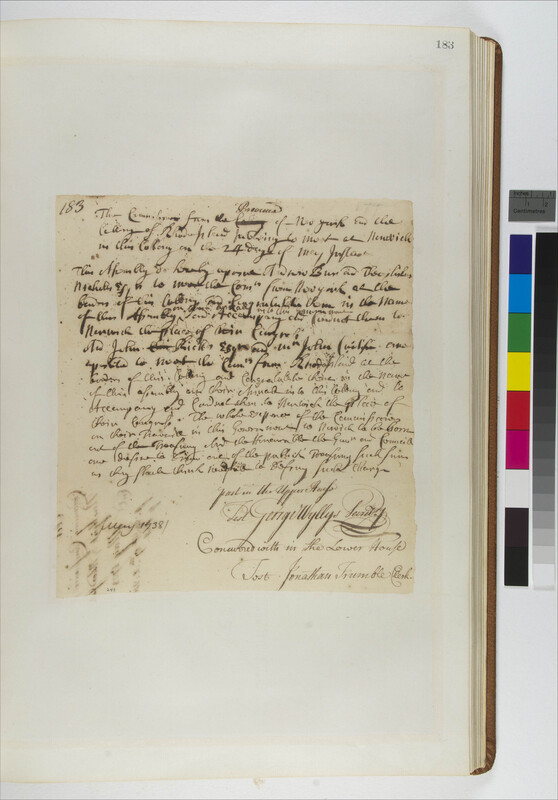 183
183
Province
The Comissioners from the of New york and the
Colony of Rhode Island Intending to meet at Norwich
in this Colony on the 24 day of May Instant
This Assembly do hereby appoint Andrew Burr and
Esqrs to meet the Comrs from New york at the
borders of this Colony and Congratulate them in the Name
of this Assembly and Accompany and Conduct them to
Norwich the place of their Congress
And John Esqr and Mr John are
appointed to meet the Comrs from Rhode Island at the
borders of this Colony and Congratulate them in the Name
of this assembly on their arrival into this Colony and to
Accompany and Conduct them to Norwich the place of
their Congress. The whole expence of the Commissioners
in their in this Government to Norwich to be born
out of the Treasury And the Governor and Council
are desired to out of the publick Treasury such sums
as they shall think needful to Defray such Charge
past in the Upper House
Test George Wyllys Secrety
Concurred with in the Lower House
Test Jonathan Trumble Clerk